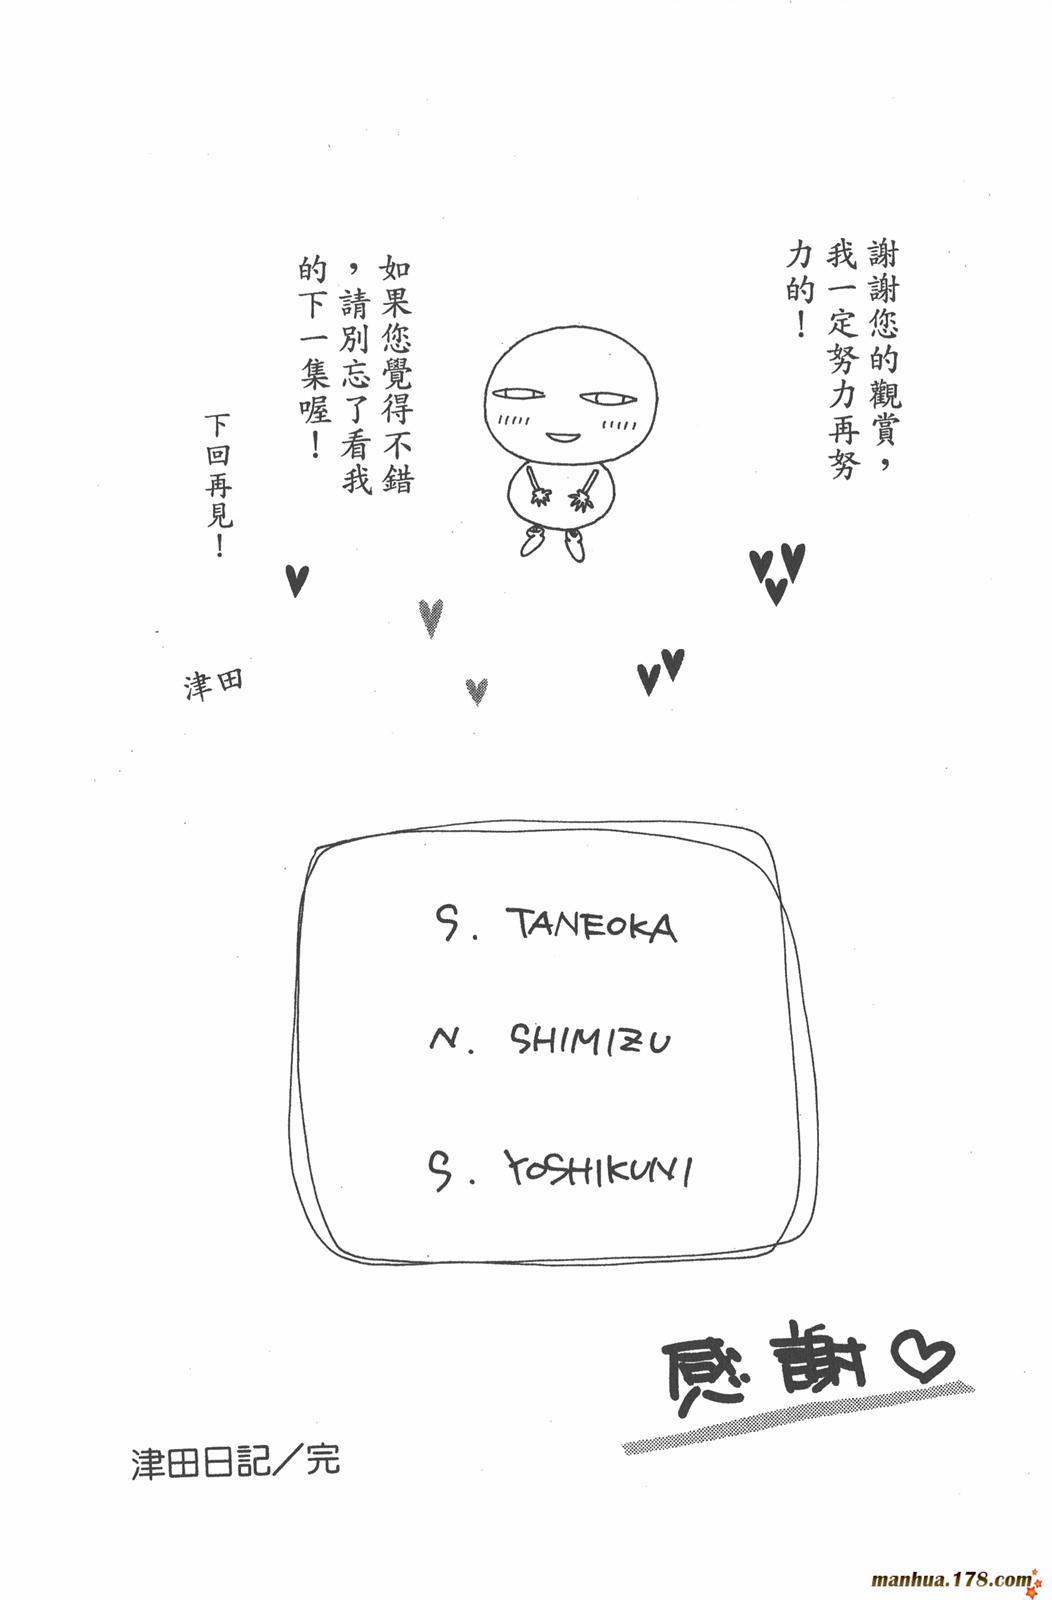 謝謝您的觀賞，
我一定努力再努
力的！
如果您覺得不錯
，請別忘了看我
的下一集喔！
下回再見！
津田
S. TANEOKA
N. SHIMIZU
S. YOSHIKUNI
感謝♡
津田日記／完
manhua.178.com